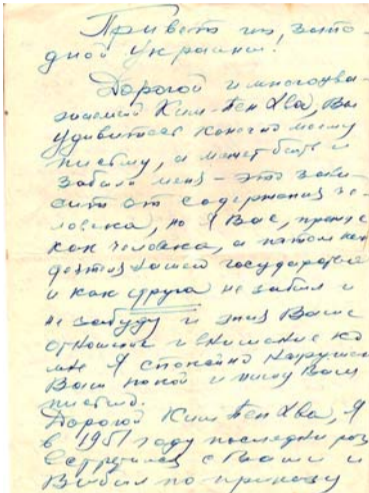 Привет из запа-
дной Украины!
Дорогой и многоува-
жаемый Ким-Бен Хва, Вы
удивитесь конечно моему
письму, а может быть и
забыли меня - это зави-
сит от содержания че-
ловека, но я Вас, прежде
как человека, а потом как
вашего государства
и как друга не забыл и
не забуду и этих Ваше
отношение и внимание ко
мне я спокойно нарушаю
Ваш покой и пишу Вам
письмо.
Дорогой Ким Бен Хва, я
в 1951 году последний раз
встретился с Вами и
выбыл по приказу